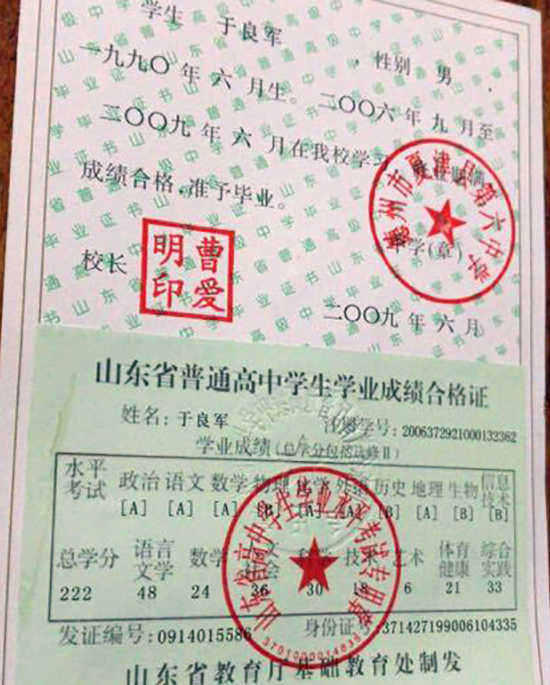 学生 于良军 性别 男
一九九〇年六月生。二〇〇六年九月至
二〇〇九年六月在我校学习
成绩合格,准予毕业。
德州市夏津县第六中学
中学(章)
校长
曹爱明印
二〇〇九年六月
山东省普通高中学生学业成绩合格证
姓名:于良军 注册学号:2006372921000132362
学业成绩(总学分包括选修Ⅱ)
水平考试 政治 语文 数学 物理 化学 历史 地理 生物 信息技术
[A] [A] [A] [B] [A] [B] [B]
总学分 语言文学 数学 技术 艺术 体育健康 综合实践
222 48 24 36 30 18 6 21 33
发证编号:0914015586 身份证号:371427199006104335
山东省教育厅基础教育处制发